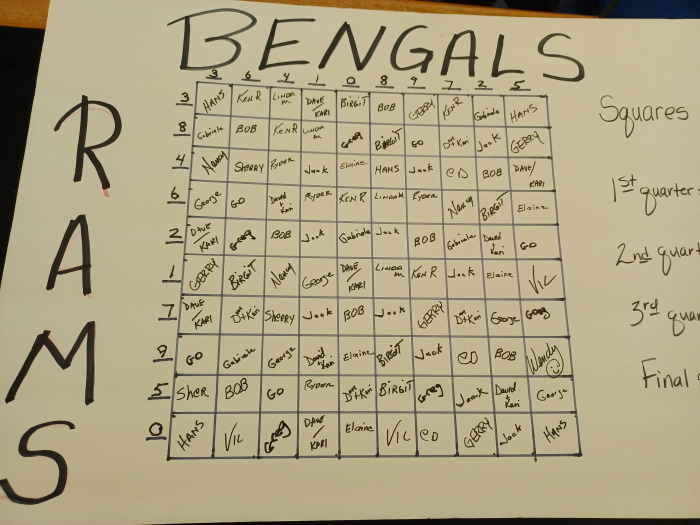 BENGALS
RAMS
3 6 4 1 0 8 9 7 2 5
3 HANS KEN R LINDA M DAVE/KARI BIRGIT BOB GERRY KEN R Gabriele HANS
8 Gabriele BOB KEN R LINDA M Greg BIRGIT GO D+Kari Jack GERRY
4 Nancy SHERRY RYDER Jack Elaine HANS Jack CD BOB DAVE/KARI
6 George GO David + Kari RYDER KEN R LINDA M RYDER Nancy BIRGIT Elaine
2 DAVE/KARI Greg BOB Jack Gabriele Jack BOB Gabriele David + Kari GO
1 GERRY BIRGIT Nancy George DAVE/KARI LINDA M KEN R Jack Elaine VIL
7 DAVE/KARI D+Kari SHERRY Jack BOB Jack GERRY D+Kari George Greg
9 GO Gabriele George David + Kari Elaine BIRGIT Jack CD BOB Wendy
5 SHER BOB GO RYDER D+Kari BIRGIT Greg Jack David + Kari George
0 HANS VIL Greg DAVE/KARI Elaine VIL CD GERRY Jack HANS
Squares
1st quarter
2nd quart
3rd quar
Final